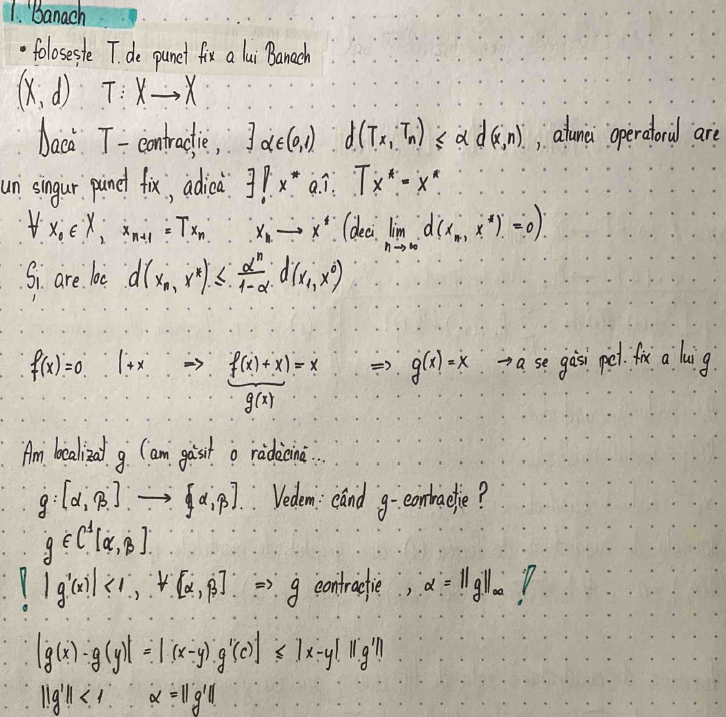 1. Banach
• folosește T. de punct fix a lui Banach
(X, d) T : X → X
Dacă T - contracție, ∃ α∈(0,1) d(Tx, Tn) ≤ α d(x,n), atunci operatorul are
un singur punct fix, adică ∃! x* a.î. Tx* = x*
∀ x₀ ∈ X, xₙ₊₁ = Txₙ xₙ → x* (deci lim n→∞ d(xₙ, x*) = 0).
Și are loc d(xₙ, x*) ≤ αⁿ/(1-α) d(x₁, x⁰)
f(x)=0 |+x ⇒ f(x)+x = x ⇒ g(x)=x → a se găsi pct. fix a lui g
g(x)
Am localizat g (am găsit o rădăcină...
g : [α, β] → [α, β] Vedem când g - contracție?
g ∈ C¹[α, β]
! |g'(x)| < 1, ∀ [α, β] ⇒ g contracție, α = ||g||∞ !
|g(x) - g(y)| = |(x-y) g'(c)| ≤ |x-y| ||g'||
||g'|| < 1 α = ||g'||